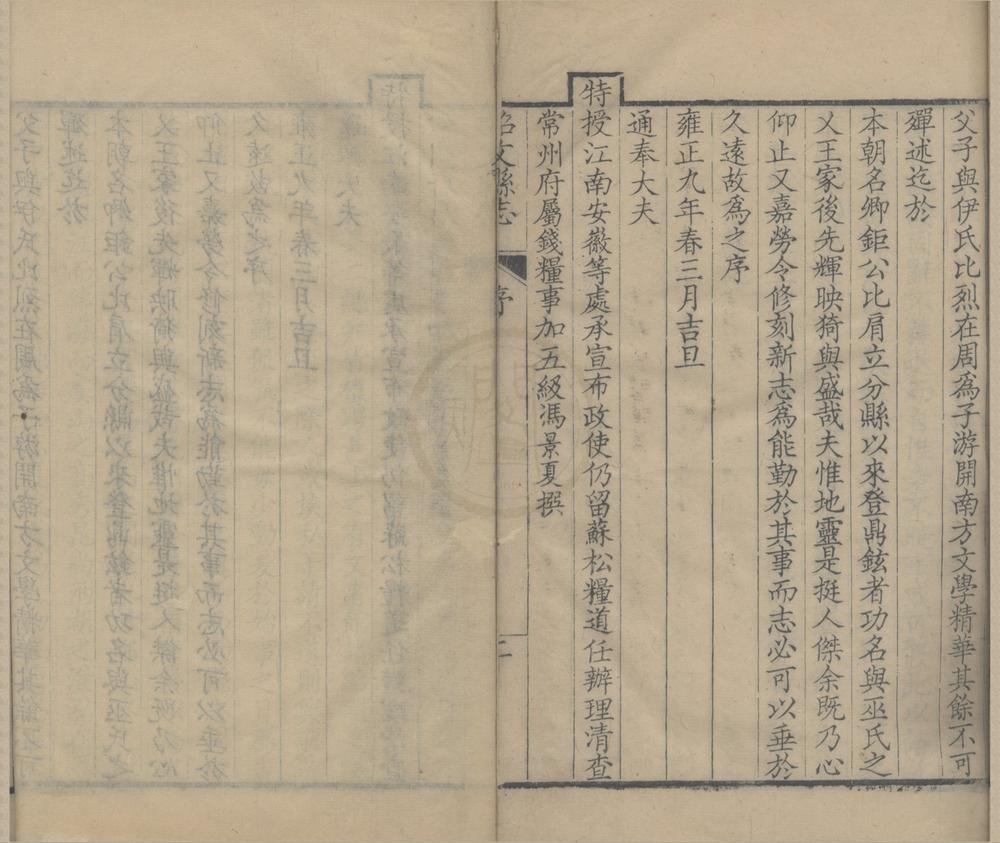 父子與伊氏比烈在周爲子游開南方文學精華其餘不可
殫述迄於
本朝名卿鉅公比肩立分縣以來登鼎鉉者功名與巫氏之
乂王家後先輝映猗與盛哉夫惟地靈是挺人傑余既乃心
仰止又嘉勞令修刻新志爲能勤於其事而志必可以垂於
久遠故爲之序
雍正九年春三月吉旦
通奉大夫
特授江南安徽等處承宣布政使仍留蘇松糧道任辦理清查
常州府屬錢糧事加五級馮景夏撰
昭文縣志
序
二